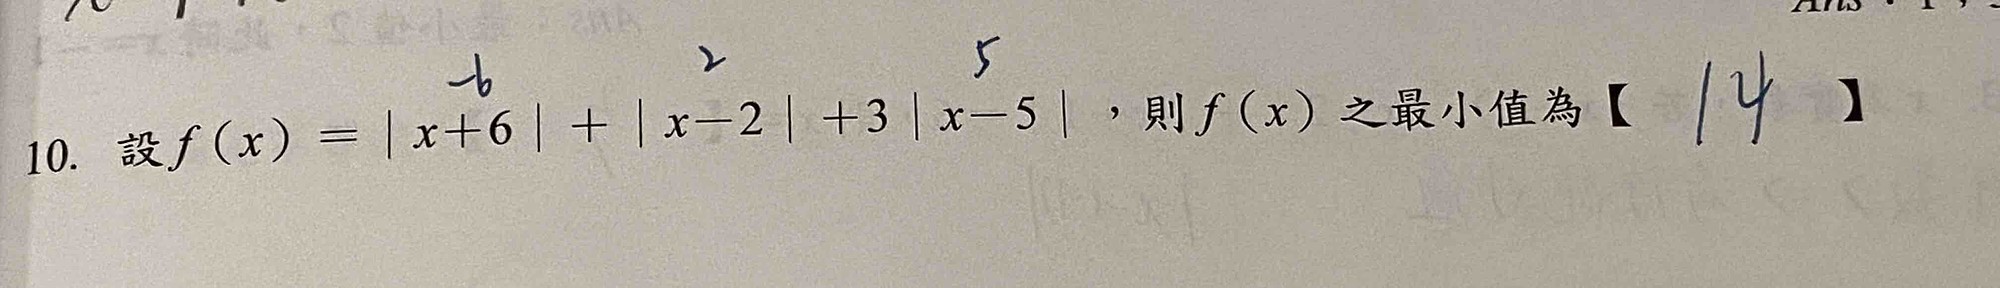 Ans：1，
-6 2 5
10. 設f(x)=|x+6|+|x-2|+3|x-5|，則f(x)之最小值為【 14 】